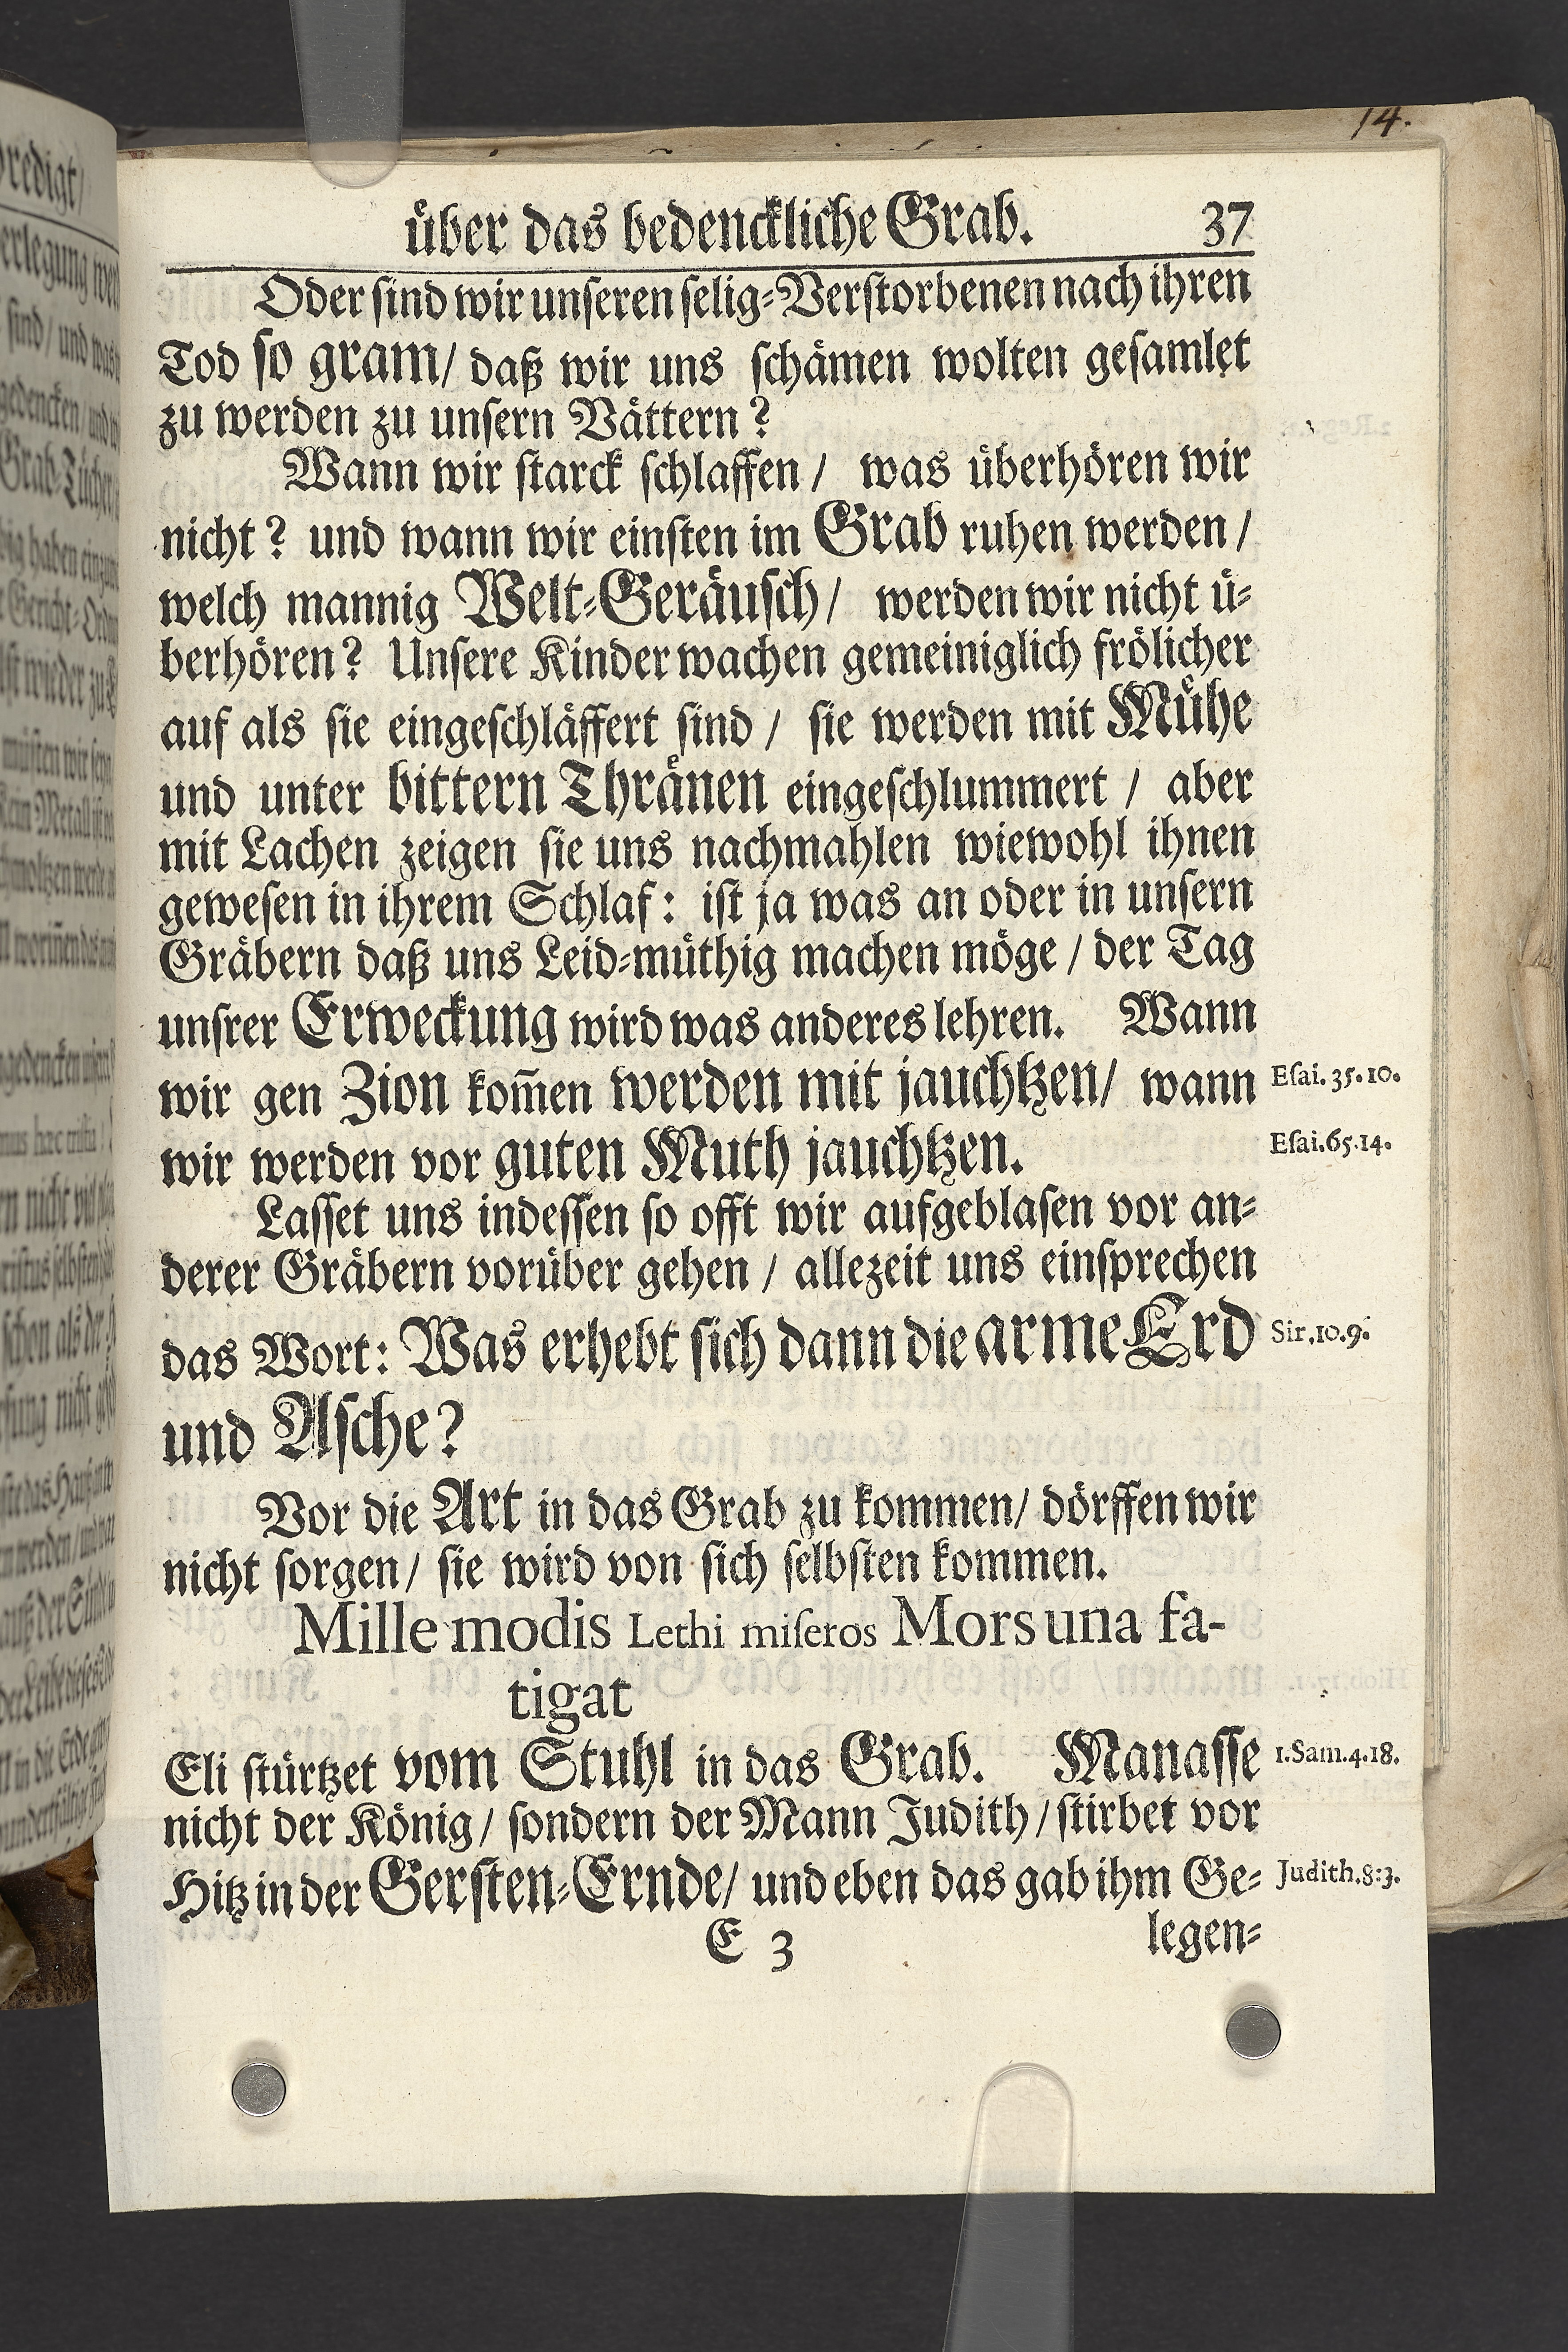 14.
über das bedenckliche Grab. 37
Oder sind wir unseren selig-Verstorbenen nach ihren
Tod so gram/ daß wir uns schämen wolten gesamlet
zu werden zu unsern Vättern?
Wann wir starck schlaffen / was überhören wir
nicht? und wann wir einsten im Grab ruhen werden /
welch mannig Welt-Geräusch / werden wir nicht ü-
berhören? Unsere Kinder wachen gemeiniglich frölicher
auf als sie eingeschläffert sind / sie werden mit Mühe
und unter bittern Thränen eingeschlummert / aber
mit Lachen zeigen sie uns nachmahlen wiewohl ihnen
gewesen in ihrem Schlaf: ist ja was an oder in unsern
Gräbern daß uns Leid-müthig machen möge / der Tag
unsrer Erweckung wird was anderes lehren. Wann
wir gen Zion kom̃en werden mit jauchtzen/ wann Esai. 35. 10.
wir werden vor guten Muth jauchtzen. Esai. 65. 14.
Lasset uns indessen so offt wir aufgeblasen vor an-
derer Gräbern vorüber gehen / allezeit uns einsprechen
das Wort: Was erhebt sich dann die arme Erd Sir. 10. 9.
und Asche?
Vor die Art in das Grab zu kommen/ dörffen wir
nicht sorgen/ sie wird von sich selbsten kommen.
Mille modis Lethi miseros Mors una fa-
tigat
Eli stürtzet vom Stuhl in das Grab. Manasse 1. Sam. 4. 18.
nicht der König/ sondern der Mann Judith/ stirbet vor
Hitz in der Gersten-Ernde/ und eben das gab ihm Ge- Judith. 8: 3.
E 3 legen-